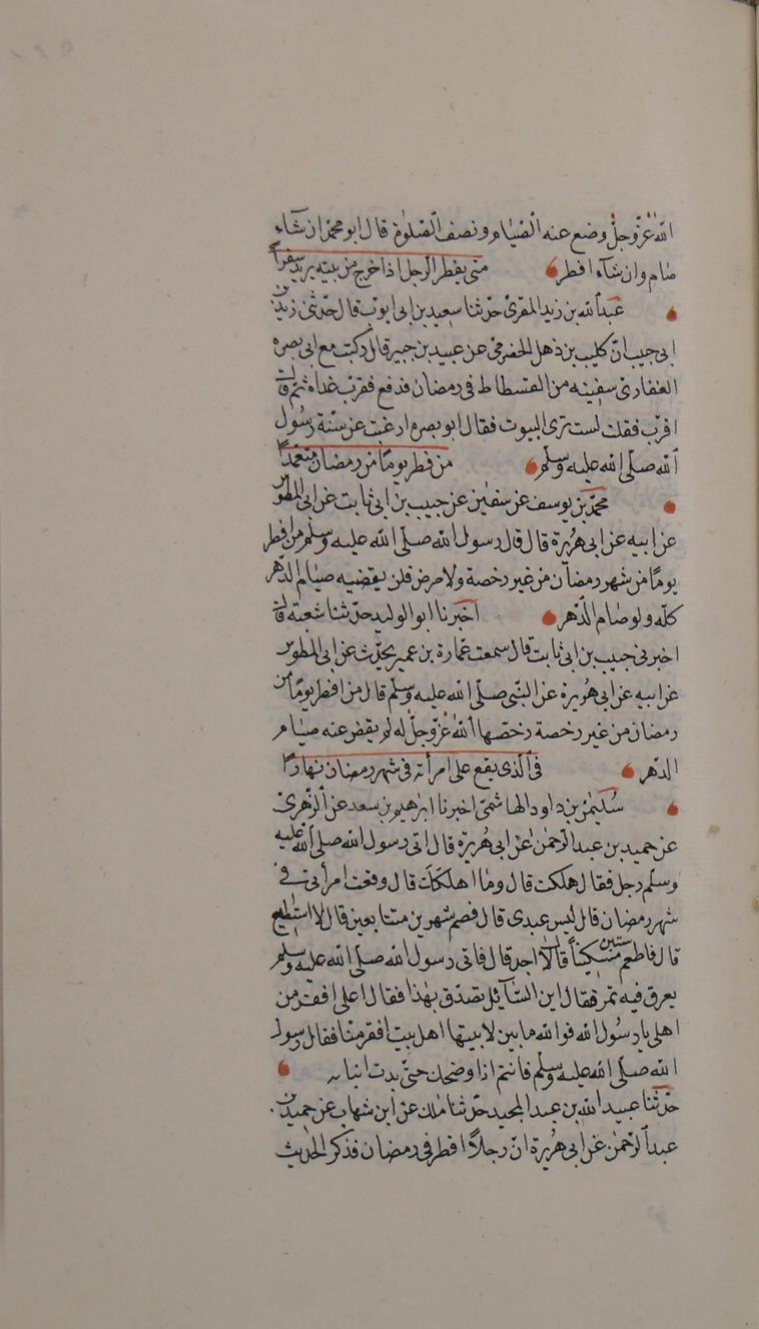 الله عزّ وجلّ وضع عنه الصّيام ونصف الصّلوة قال ابو محمّد ان شاء
صام وان شآء افطر متى يفطر الرّجل اذا خرج من بيته يريد سفراً
عبد الله بن زيد المقرئ حدّثنا سعيد بن ابى ايوب قال حدّثنى زيد بن
ابى حبيب انّ كليب بن ذهل الحضرمىّ عن عبيد بن جبير قال ركبت مع ابى بصره
الغفارىّ سفينه من الفسطاط فى رمضان فدفع فقرّب غداه ثمّ قال
اقرب فقلت لست ترى البيوت فقال ابو بصره ارغبت عن سنّة رسول
الله صلّى الله عليه وسلّم من فطر يومًا من رمضان متعمّدًا
محمّد بن يوسف عن سفين عن حبيب بن ابى ثابت عن ابى المطوّس
عن ابيه عن ابى هريرة قال قال رسول الله صلّى الله عليه وسلّم من افطر
يومًا من شهر رمضان من غير رخصة ولا مرض فلن يقضيه صيام الدّهر
كلّه ولو صام الدّهر اخبرنا ابو الوليد حدّثنا شعبة قال
اخبرنى حبيب بن ابى ثابت قال سمعت عمارة بن عمير يحدّث عن ابى المطوّس
عن ابيه عن ابى هريرة عن النّبى صلّى الله عليه وسلّم قال من افطر يومًا من
رمضان من غير رخصة رخّصها الله عزّ وجلّ له لم يقض عنه صيام
الدّهر فى الّذى يقع على امرأته فى شهر رمضان نهارًا
سُليمٰن بن داود الهاشمىّ اخبرنا ابرٰهيم بن سعد عن الزّهرىّ
عن حميد بن عبد الرّحمٰن عن ابى هريرة قال اتى رسول الله صلّى الله عليه
وسلّم رجل فقال هلكت قال وما اهلكك قال وقعت امرأتى فى
شهر رمضان قال ليس عبدى قال فصم شهرين متتابعين قال لا استطيع
قال فاطعم ستين مسكيناً قال لا اجد قال فاتى رسول الله صلّى الله عليه وسلّم
بعرق فيه تمر فقال اين السّآئل تصدّق بهٰذا فقال اعلى افقر من
اهلى يا رسول الله فوالله ما بين لابيتها اهل بيت افقر منّا فقال رسول
الله صلّى الله عليه وسلّم فانتم اذا وضحك حتّى بدت انيابه
حدّثنا عبيد الله بن عبد المجيد حدّثنا مٰلك عن ابن شهاب عن حميد بن
عبد الرّحمٰن عن ابى هريرة انّ رجلاً افطر فى رمضان فذكر الحديث